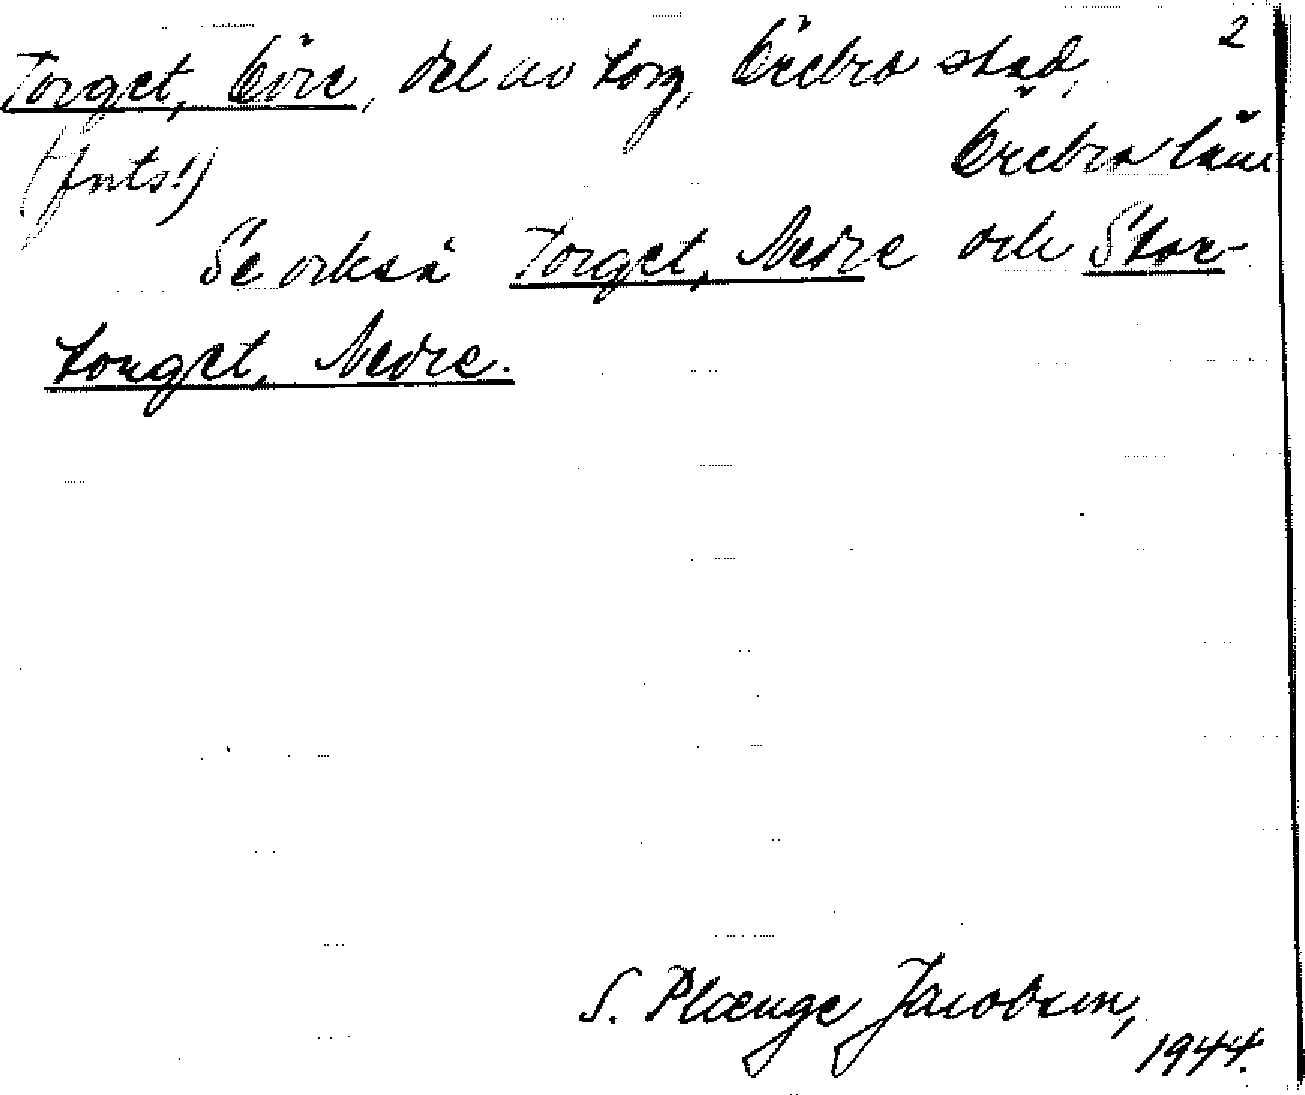 2
Torget, Övre, del av torg, Örebro stad,
(forts!) Örebro län
Se också Torget, Nedre och Stor-
torget, Nedre.
S. Plænge Jacobson,
1944.